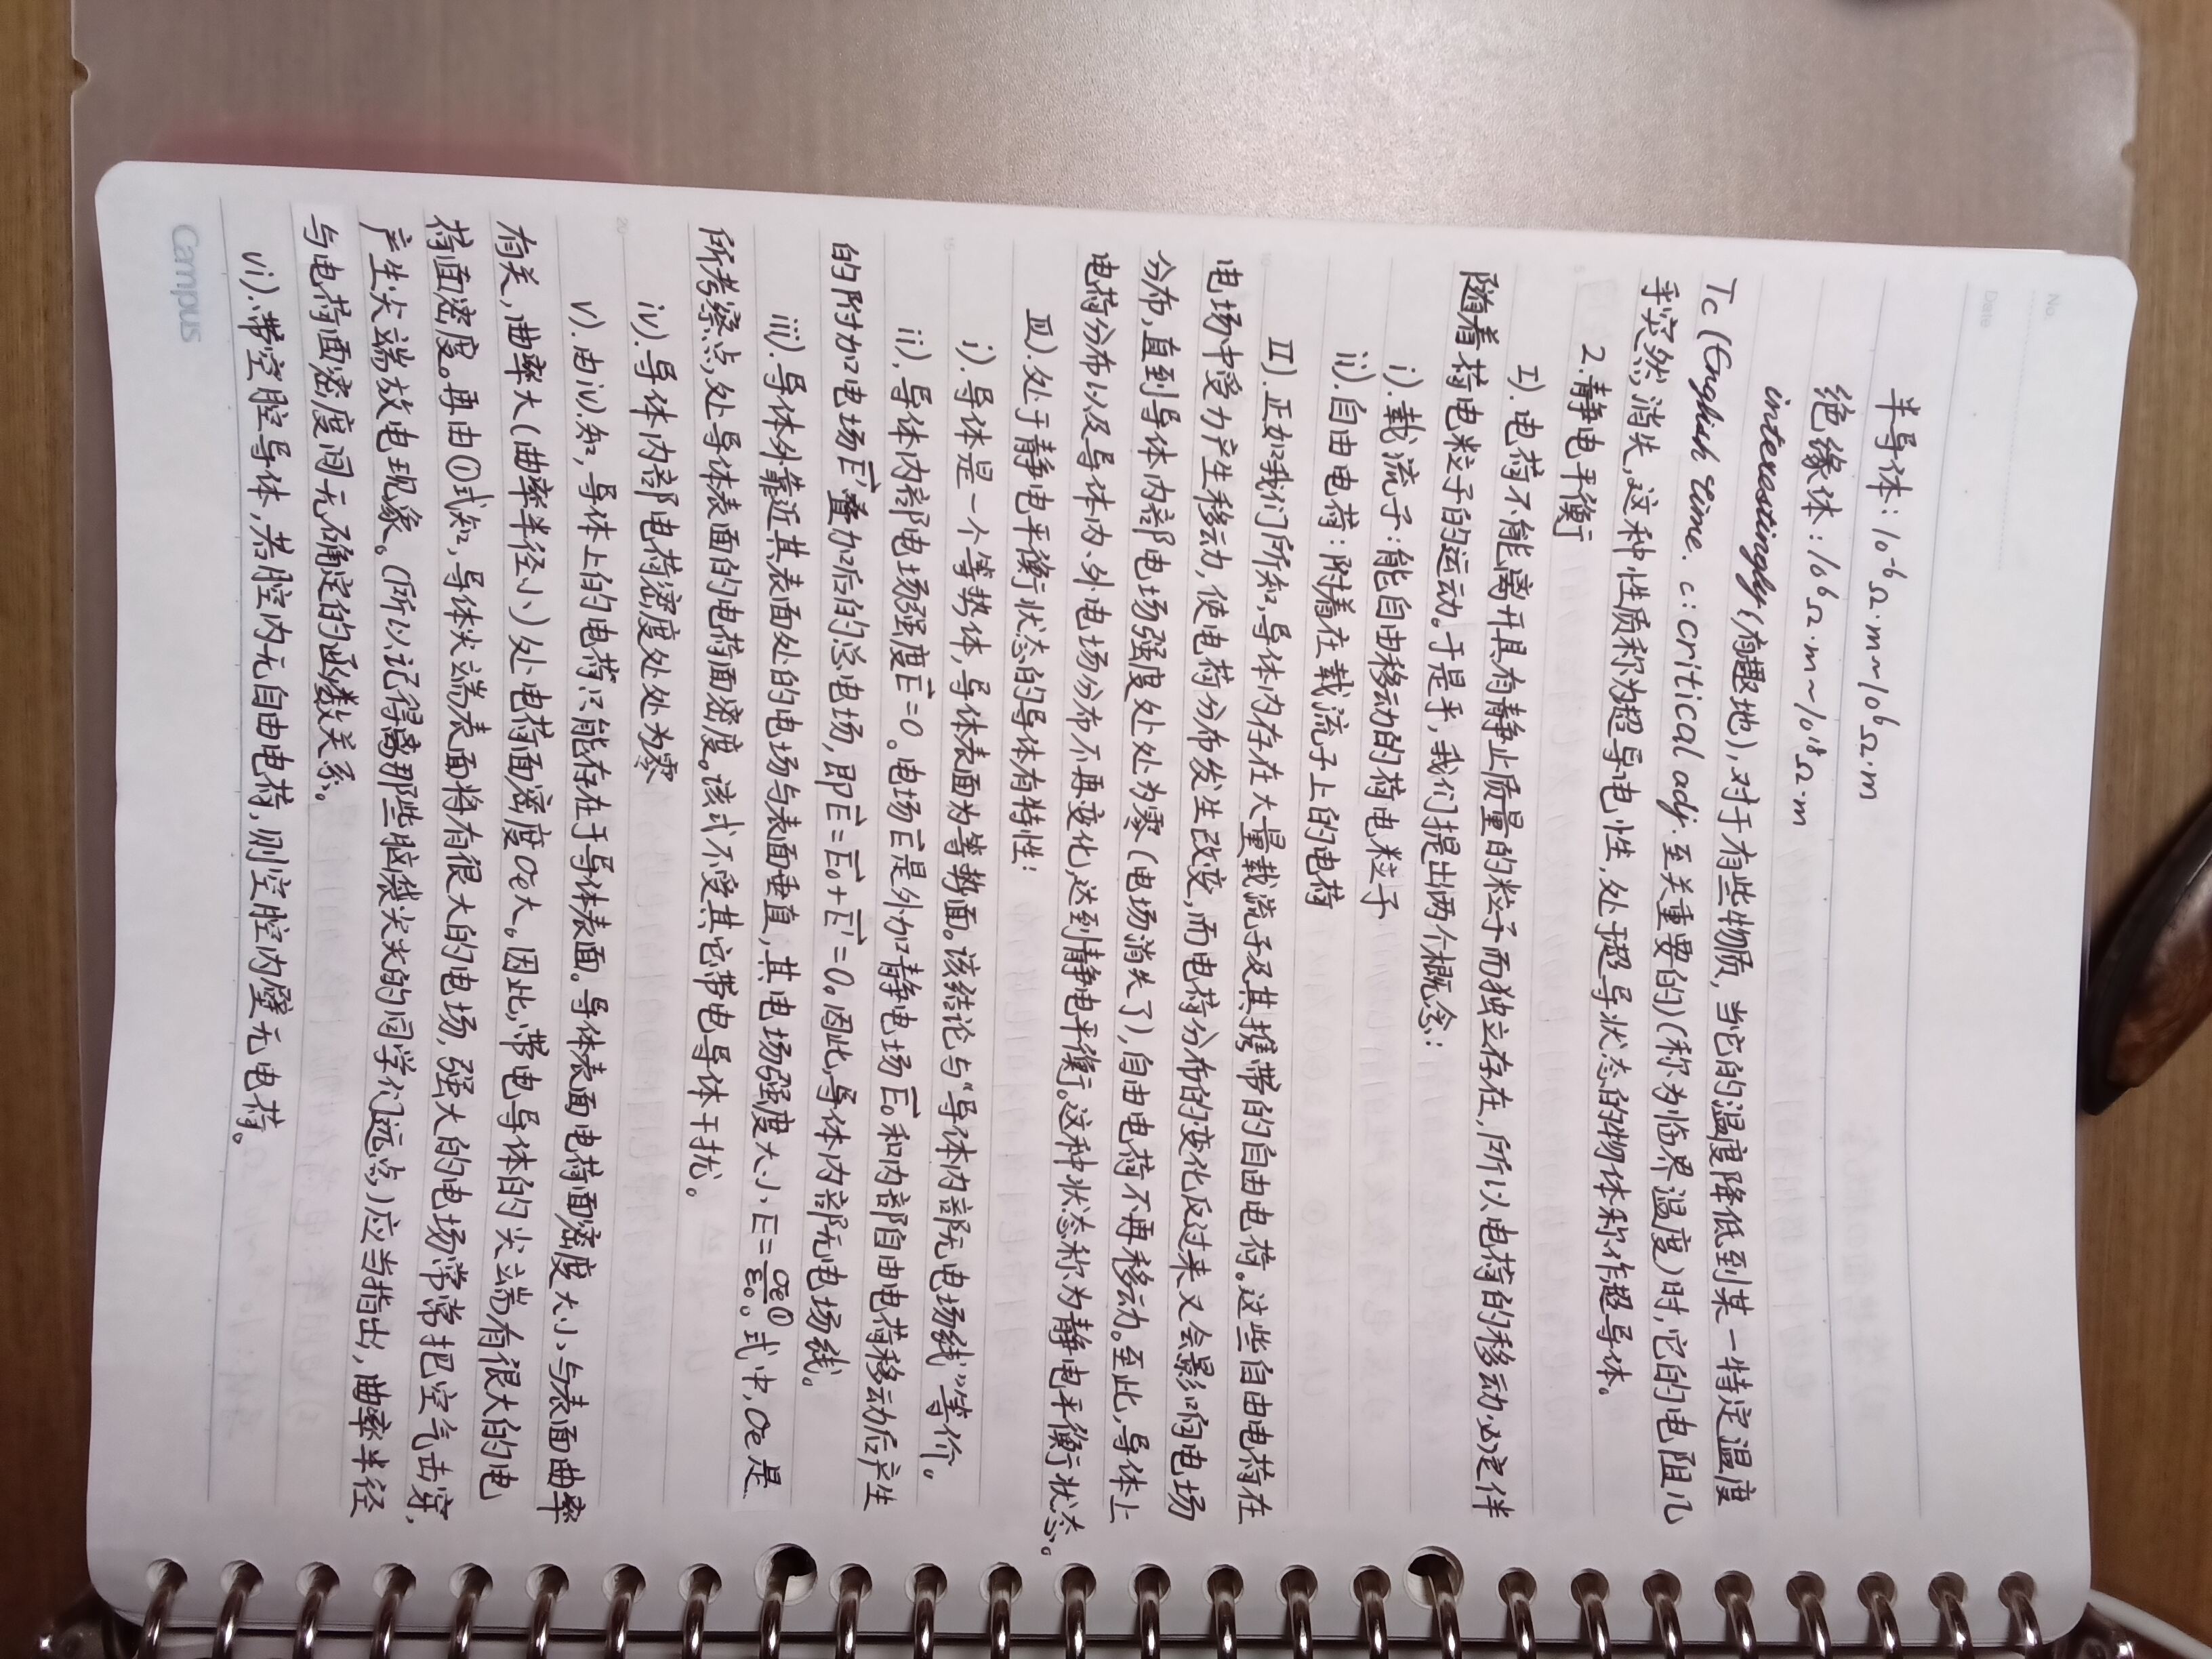 No.
Date
半导体：10⁻⁶Ω·m~10⁶Ω·m
绝缘体：10⁶Ω·m~10¹⁸Ω·m
interestingly(有趣地),对于有些物质,当它的温度降低到某一特定温度
Tc(English time. c:critical adj.至关重要的)(称为临界温度)时,它的电阻几
乎突然消失,这种性质称为超导电性,处于超导状态的物体称作超导体。
2.静电平衡
I).电荷不能离开具有静止质量的粒子而独立存在,所以电荷的移动必定伴
随着荷电粒子的运动。于是乎,我们提出两个概念:
i).载流子:能自由移动的荷电粒子
ii).自由电荷:附着在载流子上的电荷
II).正如我们所知,导体内存在大量载流子及其携带的自由电荷。这些自由电荷在
电场中受力产生移动,使电荷分布发生改变,而电荷分布的变化反过来又会影响电场
分布,直到导体内部电场强度处处为零(电场消失了),自由电荷不再移动。至此,导体上
电荷分布以及导体内、外电场分布不再变化,达到静电平衡。这种状态称为静电平衡状态。
III).处于静电平衡状态的导体有特性:
i).导体是一个等势体,导体表面为等势面。该结论与“导体内部无电场线”等价。
ii),导体内部电场强度E⃗=0。电场E⃗是外加静电场E⃗₀和内部自由电荷移动后产生
的附加电场E⃗'叠加后的总电场,即E⃗=E⃗₀+E⃗'=0。因此,导体内部无电场线。
iii).导体外靠近其表面处的电场与表面垂直,其电场强度大小E=σe/ε₀①。式中,σe是
所考察点处导体表面的电荷面密度。该式不受其它带电导体干扰。
iv).导体内部电荷密度处处为零
v).由iv).知,导体上的电荷只能存在于导体表面。导体表面电荷面密度大小与表面曲率
有关,曲率大(曲率半径小)处电荷面密度σe大。因此,带电导体的尖端有很大的电
荷面密度。再由①式知,导体尖端表面将有很大的电场,强大的电场常常把空气击穿,
产生尖端放电现象。(所以记得离那些脑袋尖尖的同学们远点)应当指出,曲率半径
与电荷面密度间无确定的函数关系。
vi).带空腔导体,若腔内无自由电荷,则空腔内壁无电荷。
Campus